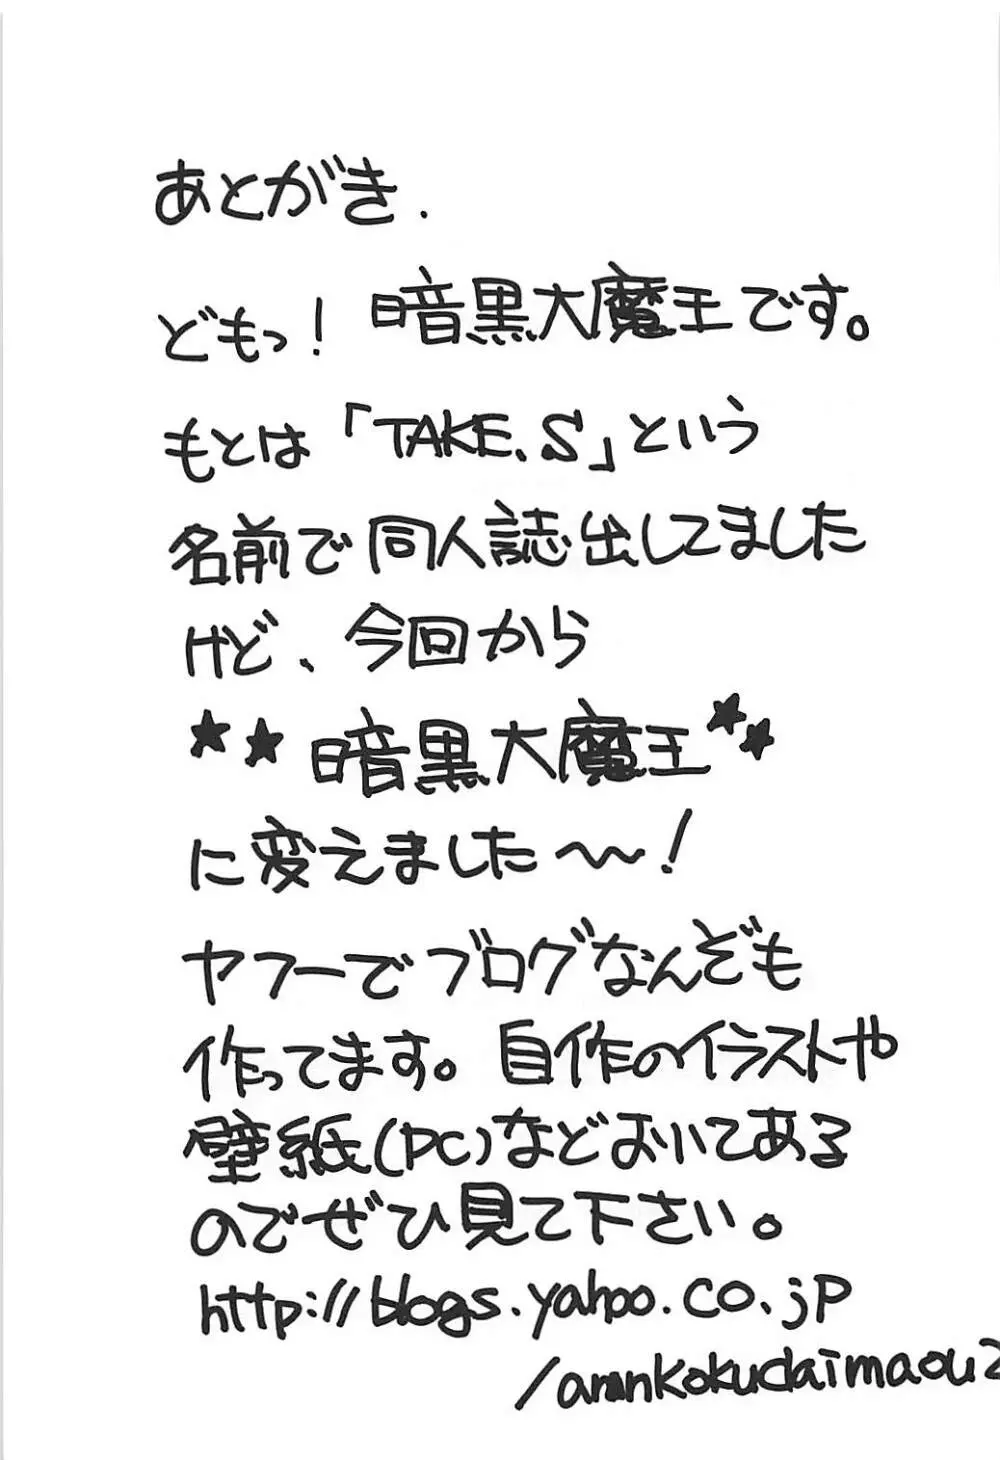 あとがき.
どもっ! 暗黒大魔王です。
もとは「TAKE.S」という
名前で同人誌出してました
けど、今回から
★★暗黒大魔王★★
に変えました〜!
ヤフーでブログなんぞも
作ってます。自作のイラストや
壁紙(PC)などおいてある
のでぜひ見て下さい。
http://blogs.yahoo.co.jp
/annkokudaimaou2